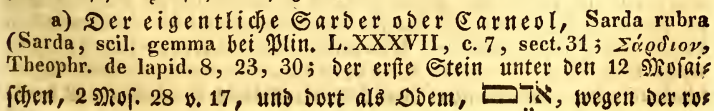 a) Der eigentliche Sarder oder Carneol, Sarda rubra
(Sarda, scil. gemma bei Plin. L. XXXVII, c. 7, sect. 31; Σάρδιον,
Theophr. de lapid. 8, 23, 30; der erste Stein unter den 12 Mosai⸗
schen, 2 Mos. 28 v. 17, und dort als Odem, אֹדֶם, wegen der ro⸗